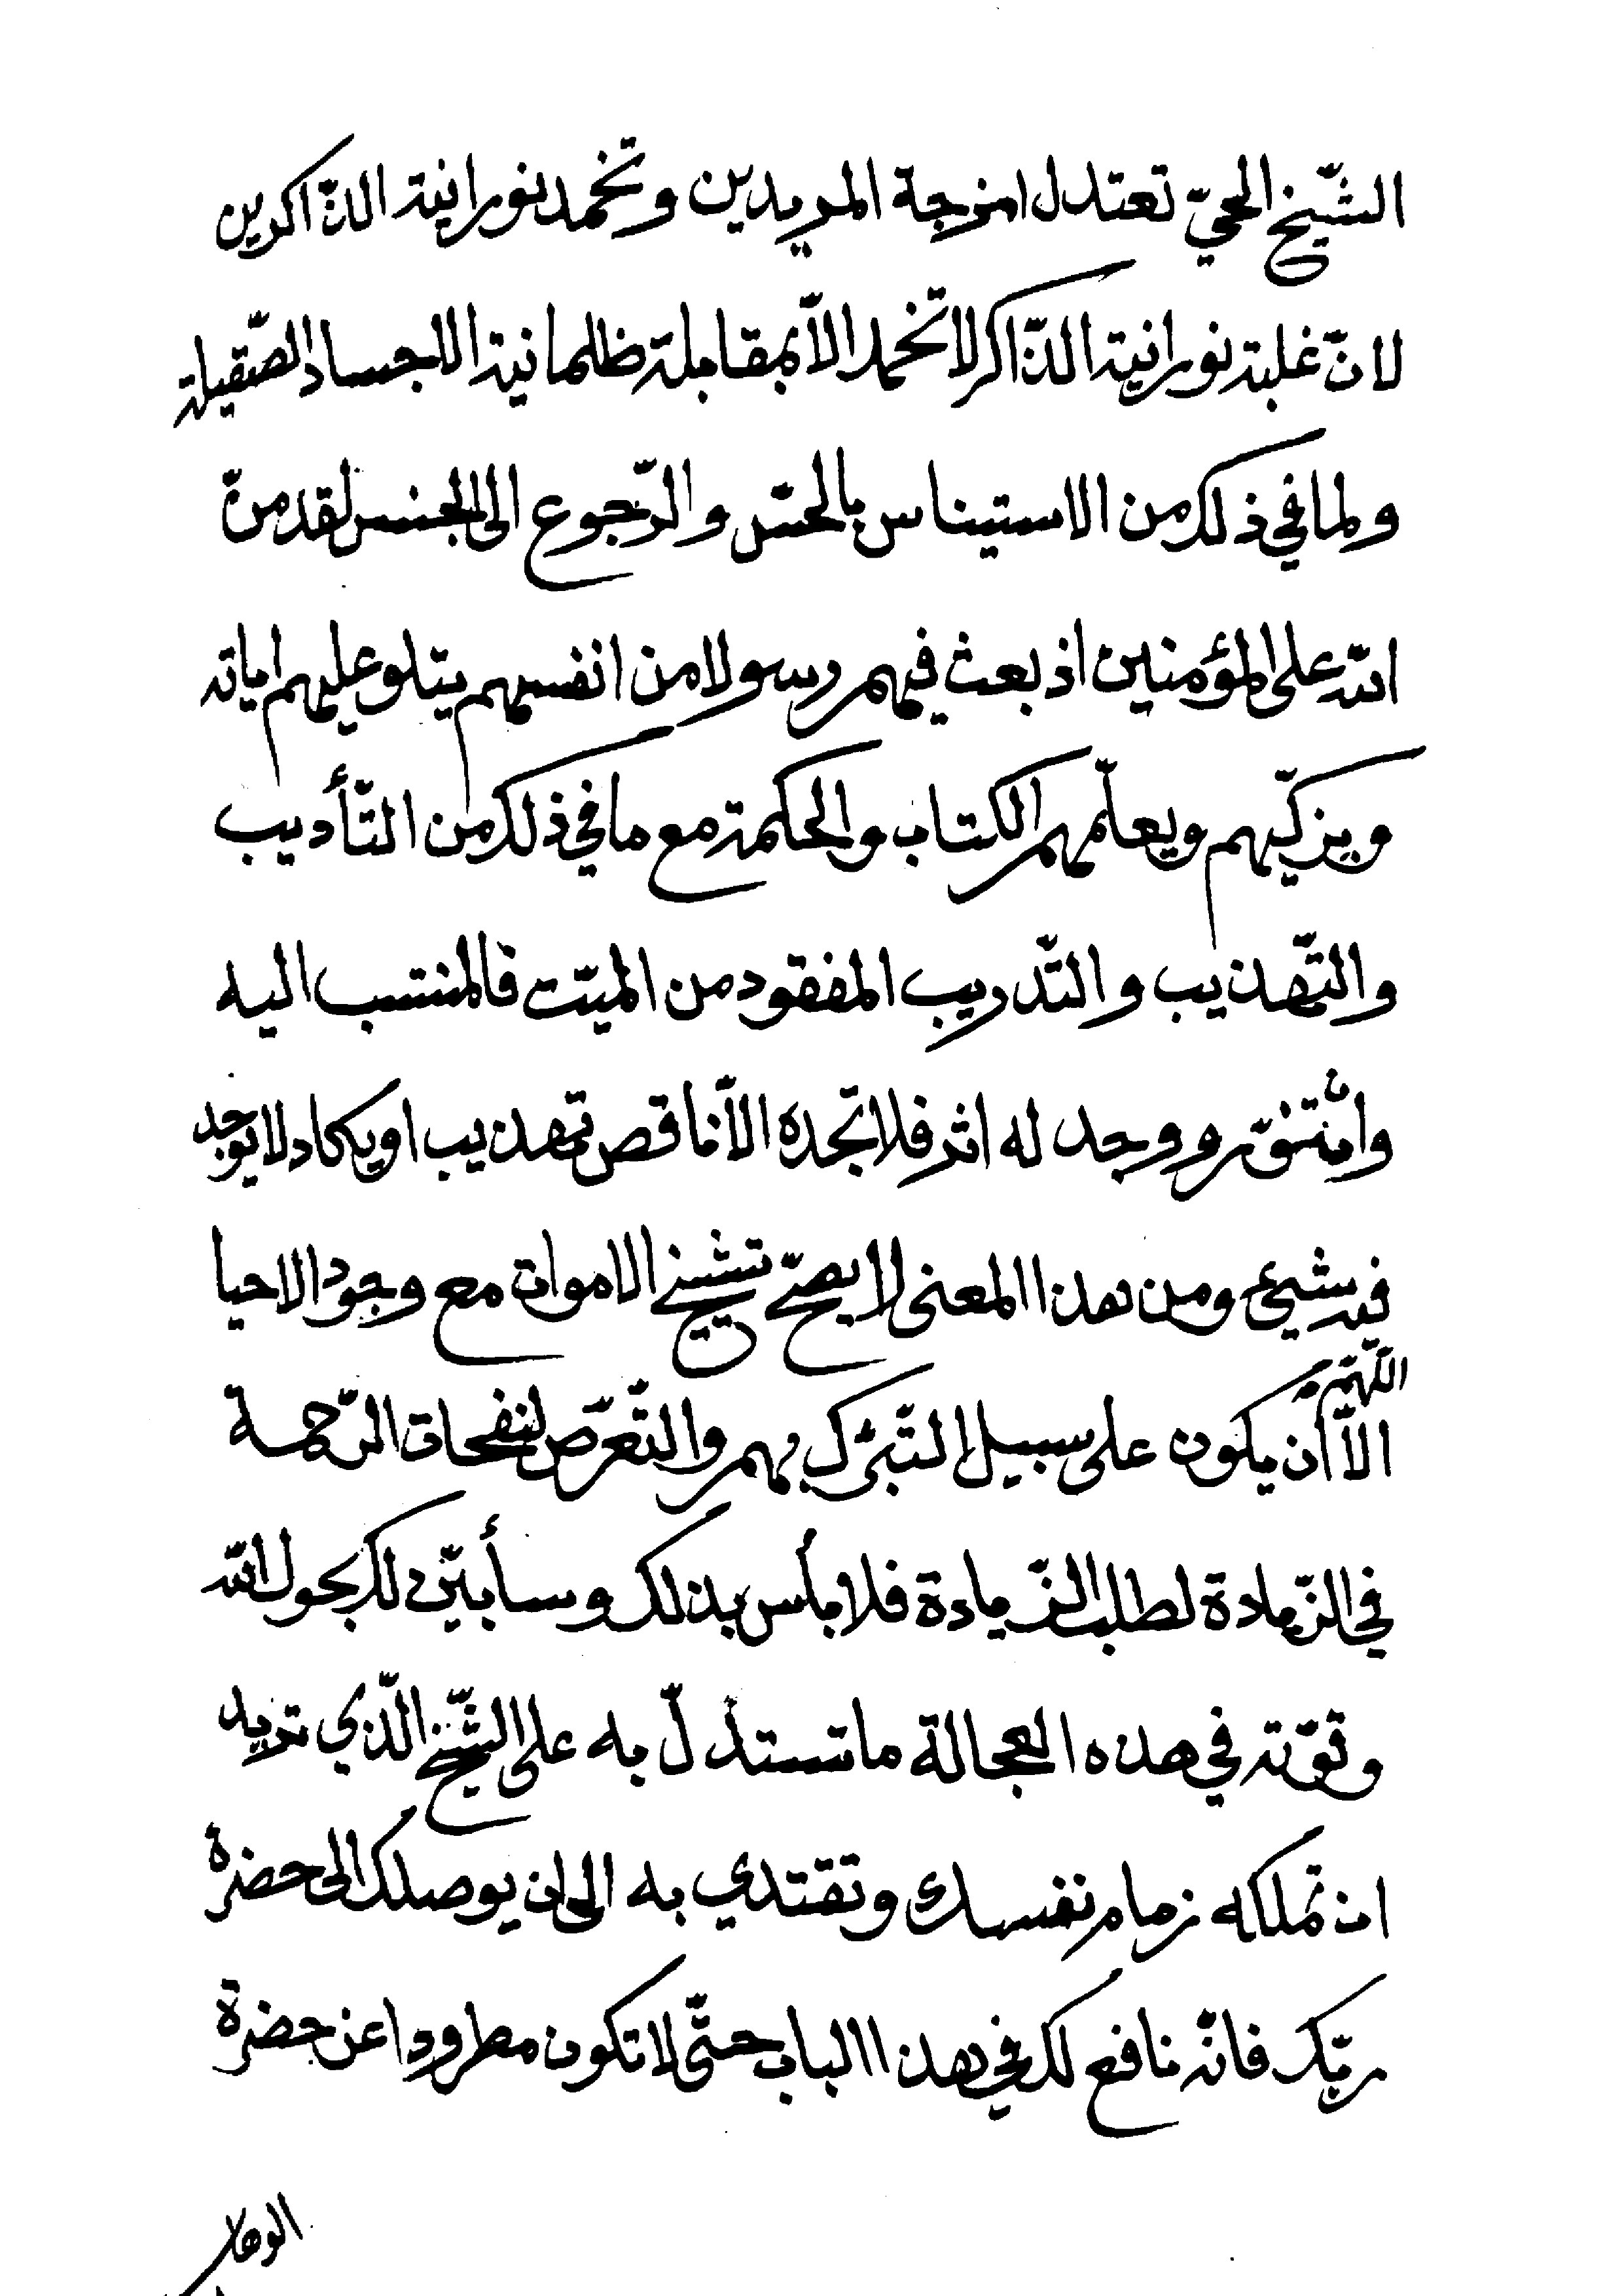 الشّيخ الحيّ تعتدل امزجة المريدين وتخمد نورانية الذّاكرين
لانّ غلبة نورانية الذّاكر لا تخمد الاّ بمقابلة ظلمانية الاجساد الصّقيلة
ولما في ذلك من الاستيناس بالحسّ والرّجوع الى الجنس لقد منّ
الله على المؤمنين اذ بعث فيهم رسولا من انفسهم يتلو عليهم اياته
ويزكّيهم ويعلّمهم الكتاب والحكمة مع ما في ذلك من التّأديب
والتّهذيب والتّدريب المفقود من الميّت فالمنتسب اليه
وان تنوّر ووجد له اثر فلا تجده الاّ ناقص تهذيب او يكاد لا يوجد
فيه شيئ ومن هذا المعنى لا يصحّ تشييخ الاموات مع وجود الاحيا
اللّهمّ
الاّ ان يكون على سبيل التّبرّك بهم والتّعرّض لنفحات الرّحمة
في الزّيادة لطلب الزّيادة فلا بأس بذلك وسأبيّن لك بحول الله
وقوّته في هذه العجالة ما تستدلّ به على الشّيخ الّذي تريد
ان تملكه زمام نفسك وتقتدي به الى ان يوصلك الى حضرة
ربّك فانّه نافع لك في هذا الباب حتّى لا تكون مطرودا عن حضرة